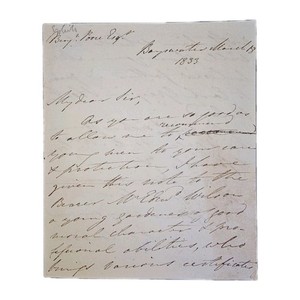 Benj. Esqr.
Bayswater March
1833
My dear Sir,
As you are so good as
to allow me to recommend
young men to your care
& protection, I have
given this note to the
Bearer Mr Wilson
a young gardener of good
moral character & pro-
fessional abilities, who
brings various certificates